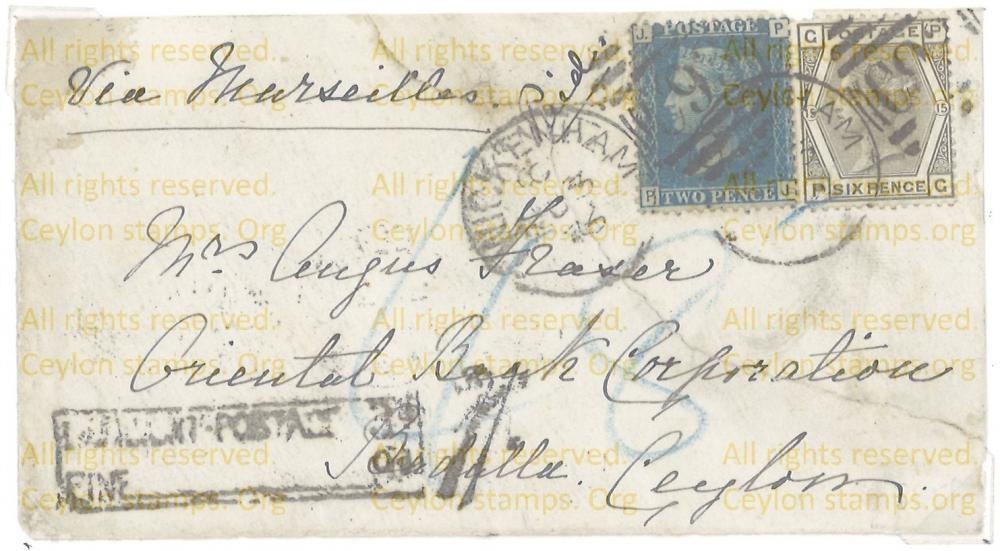 Via Marseilles.
J P
POSTAGE
P J
TWO PENCE
G P
POSTAGE
15 15
P G
SIX PENCE
Mrs Angus Fraser
Oriental Bank Corporation
Badulla. Ceylon.
POSTAGE
FINE
1
All rights reserved.
Ceylon stamps. Org
All rights reserved.
Ceylon stamps. Org
All rights reserved.
Ceylon stamps. Org
All rights reserved.
Ceylon stamps. Org
All rights reserved.
Ceylon stamps. Org
All rights reserved.
Ceylon stamps. Org
All rights reserved.
Ceylon stamps. Org
All rights reserved.
Ceylon stamps. Org
All rights reserved.
Ceylon stamps. Org
All rights reserved.
Ceylon stamps. Org
All rights reserved.
Ceylon stamps. Org
All rights reserved.
Ceylon stamps. Org